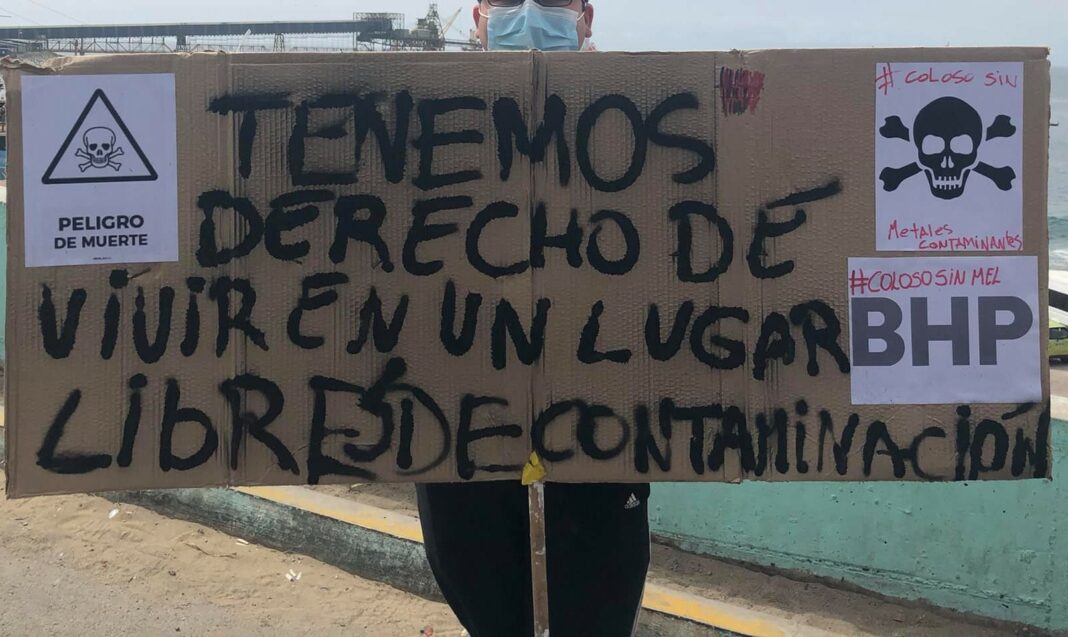 TENEMOS
DERECHO DÉ
VIVIR EN UN LUGAR
LIBRES DE CONTAMINACIÓN
PELIGRO
DE MUERTE
# COLOSO SIN
METALES
CONTAMINANTES
#COLOSO SIN MEL
BHP
adidas